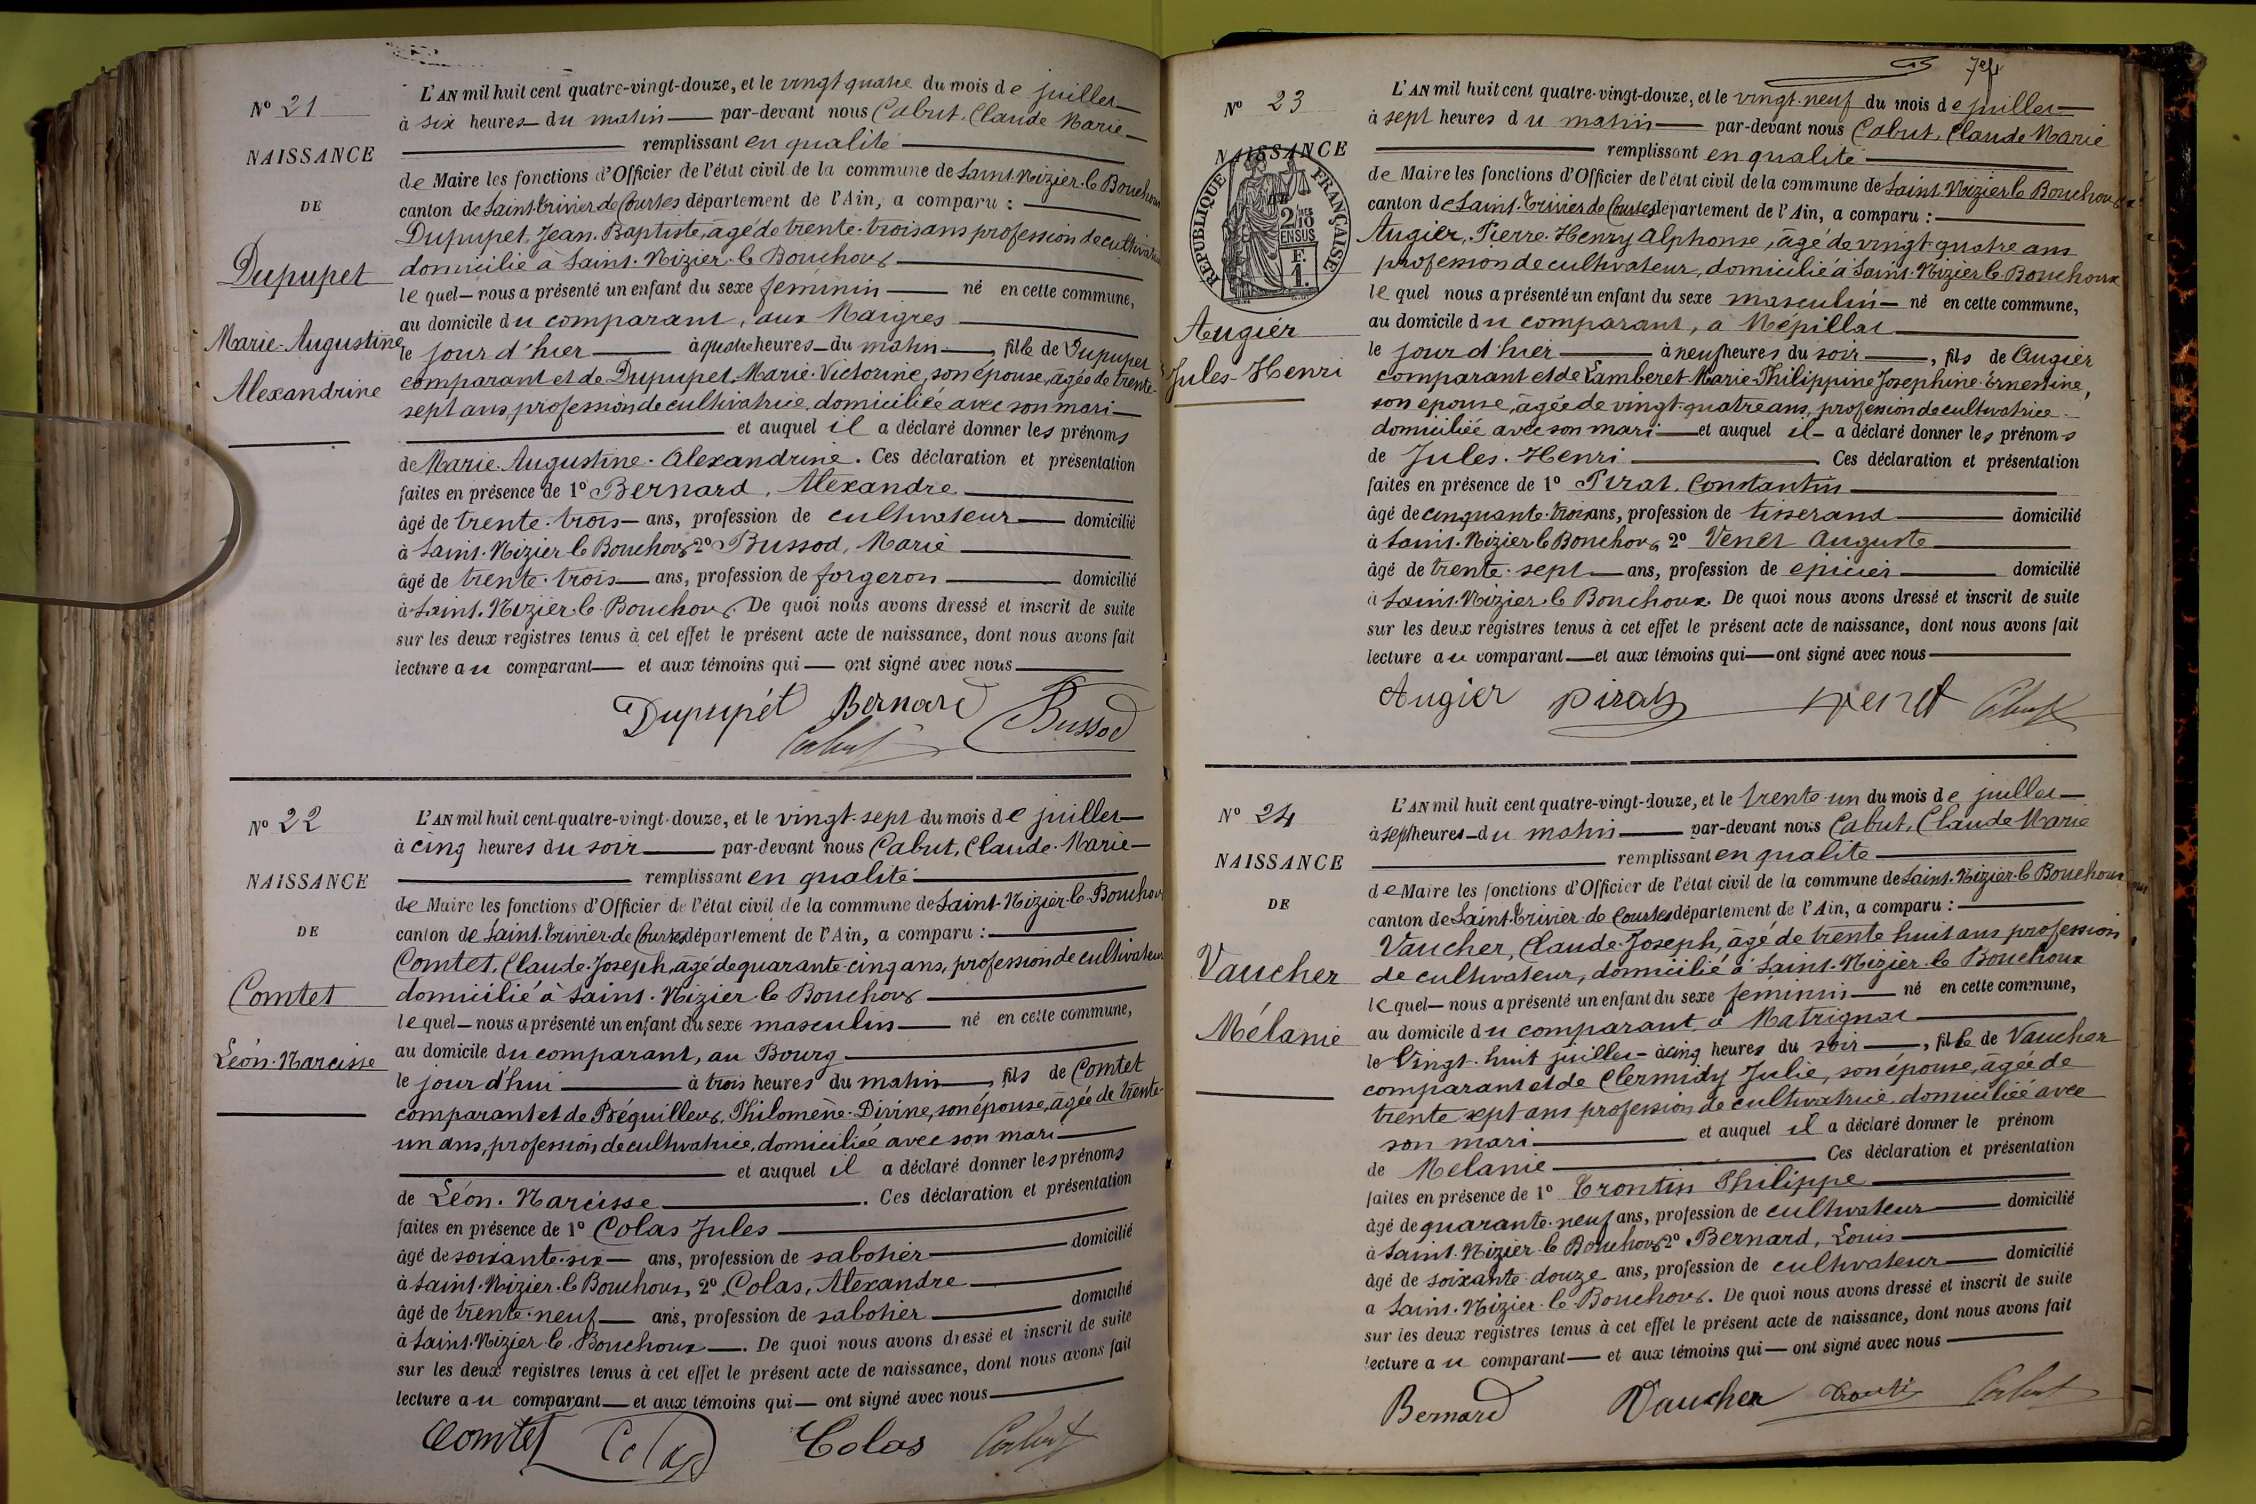 N° 21
NAISSANCE
DE
Dupupet
Marie-Augustine
Alexandrine
L'AN mil huit cent quatre-vingt-douze, et le vingt quatre du mois de juillet
à six heures du matin par-devant nous Cabut, Claude Marie
remplissant en qualité
de Maire les fonctions d'Officier de l'état civil de la commune de Saint-Nizier-le Bouchoux
canton de Saint-Trivier de Courtes département de l'Ain, a comparu :
Dupupet, Jean-Baptiste, âgé de trente-trois ans profession de cultivateur
domicilié à Saint-Nizier-le Bouchoux
lequel nous a présenté un enfant du sexe féminin né en cette commune,
au domicile du comparant, aux Maigres
le jour d'hier à quatre heures du matin, fille de Dupupet
comparant et de Dupupet, Marie-Victorine, son épouse, âgée de trente-
sept ans, profession de cultivatrice, domiciliée avec son mari
et auquel il a déclaré donner les prénoms
de Marie-Augustine-Alexandrine. Ces déclaration et présentation
faites en présence de 1° Bernard, Alexandre
âgé de trente-trois ans, profession de cultivateur domicilié
à Saint-Nizier le Bouchoux 2° Bussod, Marie
âgé de trente-trois ans, profession de forgeron domicilié
à Saint-Nizier-le-Bouchoux. De quoi nous avons dressé et inscrit de suite
sur les deux registres tenus à cet effet le présent acte de naissance, dont nous avons fait
lecture au comparant et aux témoins qui ont signé avec nous
Dupupét Bernard Bussod
Cabut
N° 22
NAISSANCE
DE
Comtet
Léon-Narcisse
L'AN mil huit cent quatre-vingt-douze, et le vingt-sept du mois de juillet
à cinq heures du soir par-devant nous Cabut, Claude-Marie
remplissant en qualité
de Maire les fonctions d'Officier de l'état civil de la commune de Saint-Nizier-le-Bouchoux
canton de Saint-Trivier-de Courtes département de l'Ain, a comparu :
Comtet, Claude-Joseph, âgé de quarante-cinq ans, profession de cultivateur
domicilié à Saint-Nizier le Bouchoux
lequel nous a présenté un enfant du sexe masculin né en cette commune,
au domicile du comparant, au Bourg
le jour d'hui à trois heures du matin, fils de Comtet
comparant et de Béguilleux, Philomène-Divine, son épouse, âgée de trente-
un ans, profession de cultivatrice, domiciliée avec son mari
et auquel il a déclaré donner les prénoms
de Léon-Narcisse. Ces déclaration et présentation
faites en présence de 1° Colas Jules
âgé de soixante-six ans, profession de sabotier domicilié
à Saint-Nizier-le Bouchoux, 2° Colas, Alexandre
âgé de trente-neuf ans, profession de sabotier domicilié
à Saint-Nizier-le-Bouchoux. De quoi nous avons dressé et inscrit de suite
sur les deux registres tenus à cet effet le présent acte de naissance, dont nous avons fait
lecture au comparant et aux témoins qui ont signé avec nous
Comtet Colas Colas Cabut
N° 23
NAISSANCE
RÉPUBLIQUE FRANÇAISE
Augier
Jules-Henri
L'AN mil huit cent quatre-vingt-douze, et le vingt-neuf du mois de juillet
à sept heures du matin par-devant nous Cabut, Claude Marie
remplissant en qualité
de Maire les fonctions d'Officier de l'état civil de la commune de Saint-Nizier le Bouchoux
canton de Saint-Trivier de Courtes département de l'Ain, a comparu :
Augier, Pierre-Henry Alphonse, âgé de vingt-quatre ans
profession de cultivateur, domicilié à Saint-Nizier le Bouchoux
lequel nous a présenté un enfant du sexe masculin né en cette commune,
au domicile du comparant, à Népillat
le jour d'hier à neuf heures du soir, fils de Augier
comparant et de Lamberet Marie-Philippine Josephine-Ernestine,
son épouse, âgée de vingt-quatre ans, profession de cultivatrice
domiciliée avec son mari et auquel il a déclaré donner les prénoms
de Jules-Henri Ces déclaration et présentation
faites en présence de 1° Pirat, Constantin
âgé de cinquante-trois ans, profession de tisserand domicilié
à Saint-Nizier le Bouchoux 2° Venet Auguste
âgé de trente-sept ans, profession de épicier domicilié
à Saint-Nizier-le Bouchoux De quoi nous avons dressé et inscrit de suite
sur les deux registres tenus à cet effet le présent acte de naissance, dont nous avons fait
lecture au comparant et aux témoins qui ont signé avec nous
Augier Pirat Venet Cabut
N° 24
NAISSANCE
DE
Vaucher
Mélanie
L'AN mil huit cent quatre-vingt-douze, et le trente-un du mois de juillet
à sept heures du matin par-devant nous Cabut, Claude Marie
remplissant en qualité
de Maire les fonctions d'Officier de l'état civil de la commune de Saint-Nizier-le Bouchoux
canton de Saint-Trivier-de Courtes département de l'Ain, a comparu :
Vaucher, Claude-Joseph, âgé de trente huit ans profession
de cultivateur, domicilié à Saint-Nizier-le Bouchoux
lequel nous a présenté un enfant du sexe féminin né en cette commune,
au domicile du comparant, à Matrignat
le Vingt-huit juillet à cinq heures du soir, fille de Vaucher
comparant et de Clermidy Julie, son épouse, âgée de
trente sept ans profession de cultivatrice, domiciliée avec
son mari et auquel il a déclaré donner le prénom
de Mélanie Ces déclaration et présentation
faites en présence de 1° Trontin Philippe
âgé de quarante-neuf ans, profession de cultivateur domicilié
à Saint-Nizier-le Bouchoux 2° Bernard, Louis
âgé de soixante-douze ans, profession de cultivateur domicilié
a Saint-Nizier-le-Bouchoux. De quoi nous avons dressé et inscrit de suite
sur les deux registres tenus à cet effet le présent acte de naissance, dont nous avons fait
lecture au comparant et aux témoins qui ont signé avec nous
Bernard Vaucher Cabut